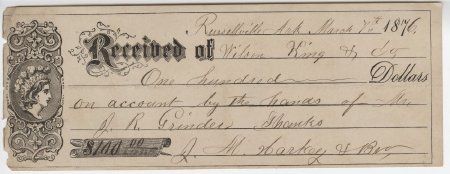 Russellville Ark March 7th 1876.
Received of Wilson King & Co
One hundred Dollars
on account by the hands of Mr
J. R. Grinder Thanks
$100.00 J. M. Harkey & Bro